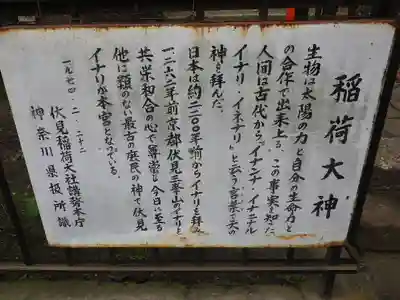 稲荷大神
生物は太陽の力と自分の生命力と
の合作で出来上る、この事実を知った
人間は古代から「イナンナ・イナニナル
イナリ・イネナリ」と云う言葉で天の
神を拝んだ。
日本は約二二〇〇年前からイナリと拝み
一二六二年前京都伏見三峯山のイナリと
共栄和合の心で尊崇し今日に至る
他に類のない最古の庶民の神で伏見
イナリが本宮となっている。
一九七四・二・二十二
伏見稲荷大社講務本庁
神奈川県扱所識